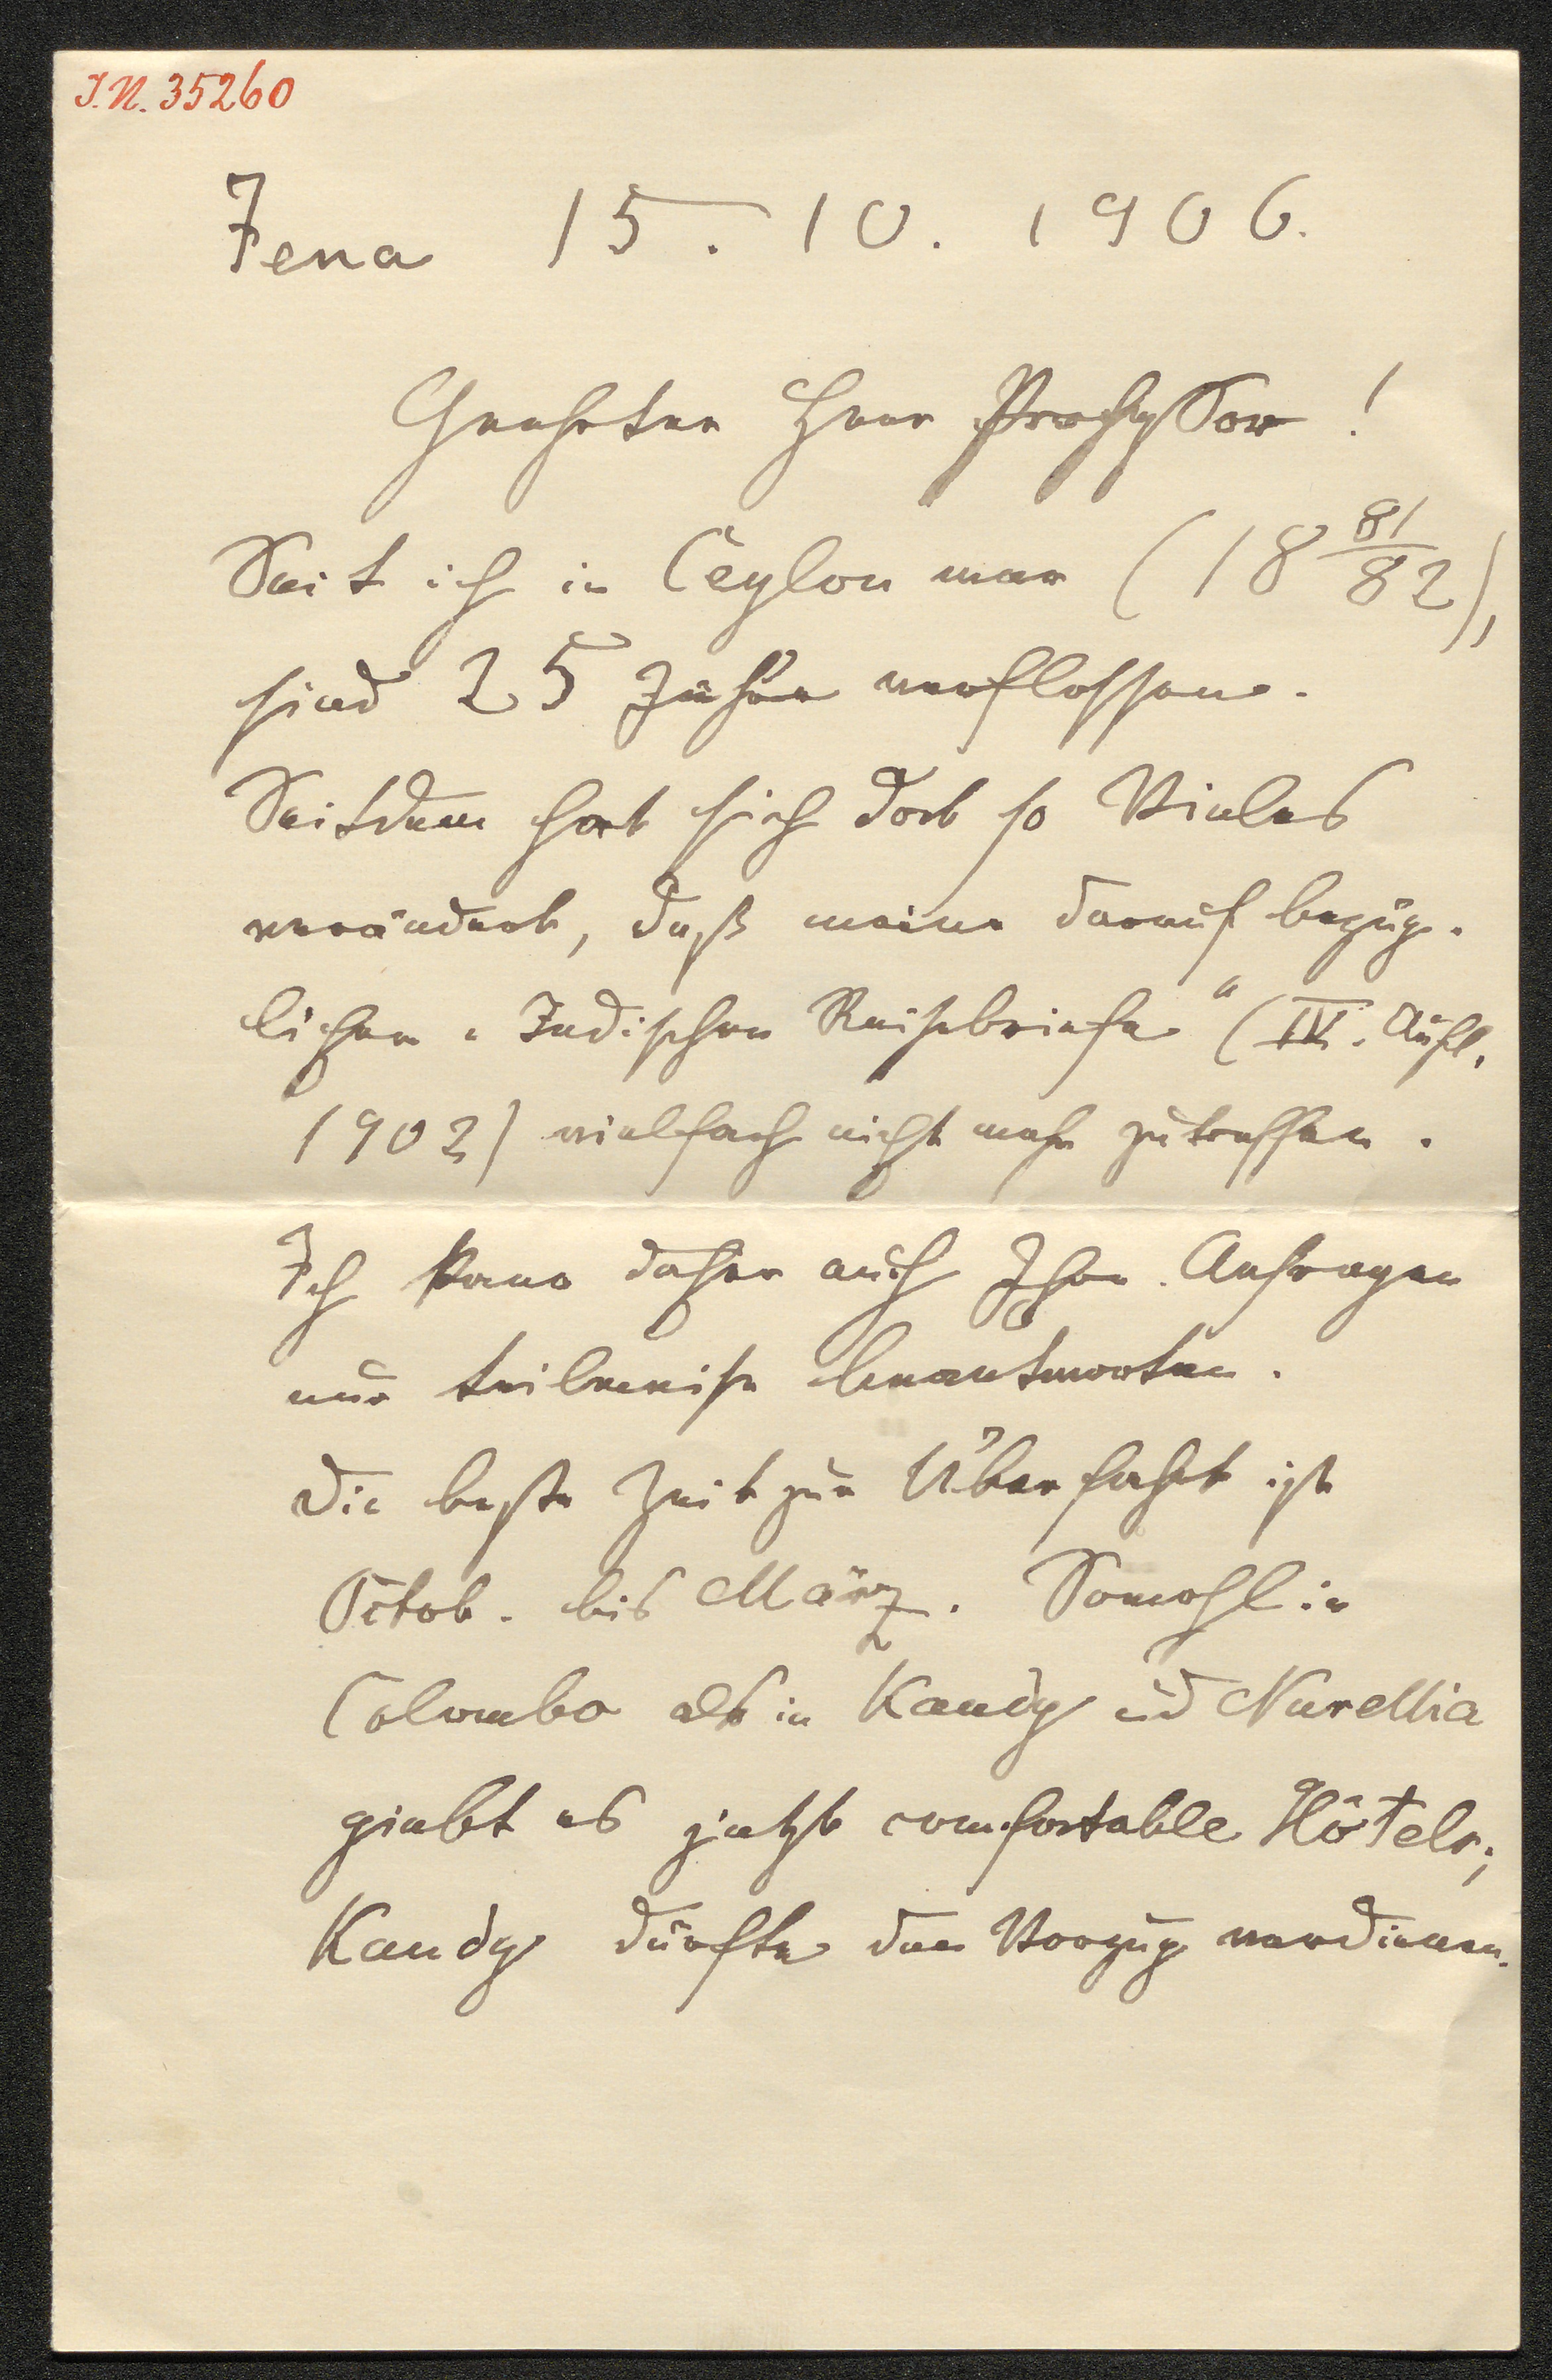 J.N. 35260
Jena 15. 10. 1906.
Geehrter Herr Professor!
Seit ich in Ceylon war (18 81/82),
sind 25 Jahre verflossen.
Seitdem hat sich dort so Vieles
verändert, daß meine darauf bezüg-
lichen „Indischen Reisebriefe“ (IV. Aufl.
1902) vielfach nicht mehr zutreffen.
Ich kann daher auch Ihre Anfragen
nur teilweise beantworten.
Die beste Zeit zur Überfahrt ist
Octob. bis März. Sowohl in
Colombo als in Kandy ud Nurellia
giebt es jetzt comfortable Hôtels;
Kandy dürfte den Vorzug verdienen.